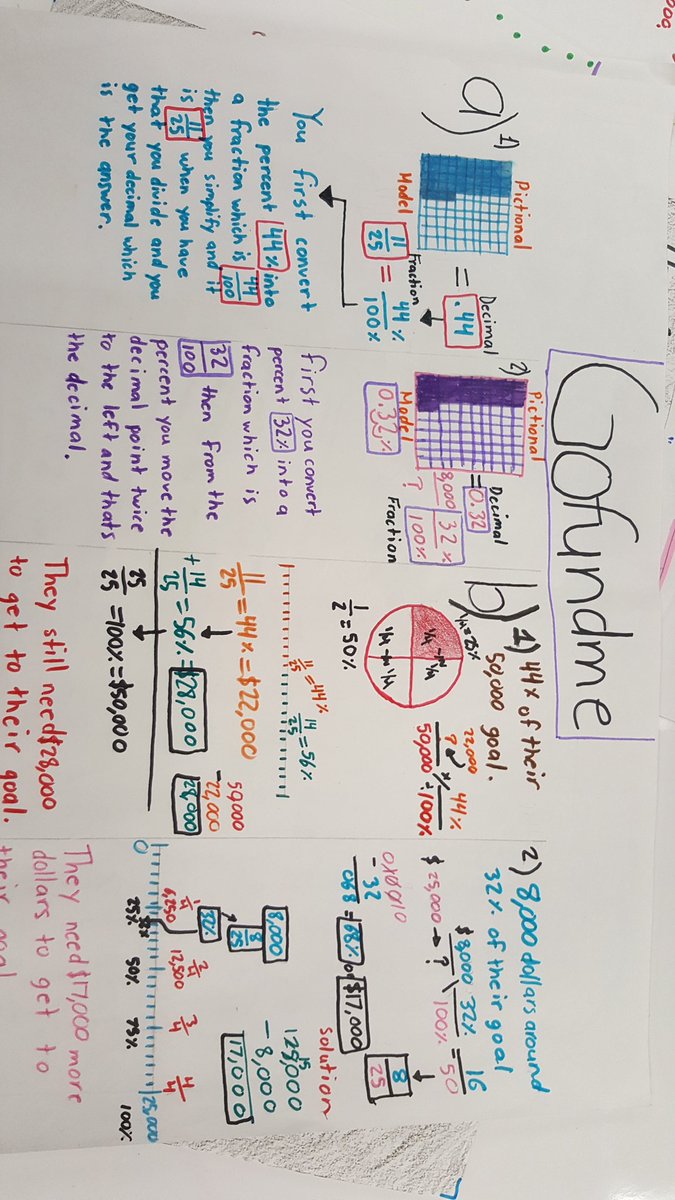 Gofundme
a)
1)
Pictional
Model
=
Decimal
.44
Fraction
11/25 = 44%/100%
You first convert
the percent 44% into
a fraction which is 44/100
then you simplify and it
is 11/25 when you have
that you divide and you
get your decimal which
is the answer.
2)
Pictional
Model
0.32%
=
Decimal
0.32
8,000/? 32%/100%
Fraction
first you convert
percent 32% into a
fraction which is
32/100 then from the
percent you move the
decimal point twice
to the left and thats
the decimal.
b)
1) 44% of their
50,000 goal.
1/4=25%
1/4
1/4
1/4
1/4
1/2 = 50%
22,000
?/50,000 44%/100%
11/25=44%
14/25=56%
11/25 = 44% = $22,000
+ 14/25 = 56% = $28,000
25/25 = 100% = $50,000
50,000
-22,000
28,000
They still need $28,000
to get to their goal.
2) 8,000 dollars around
32% of their goal
$8,000 32% = 16
$25,000 → ? 100% 50
8/25
- 32
068 = 68% or $17,000
solution
25,000
- 8,000
17,000
8,000
8/25
32%
0
25,000
1/4
6,250
2/4
12,500
3/4
4/4
25%
32%
50%
75%
100%
They need $17,000 more
dollars to get to
their goal